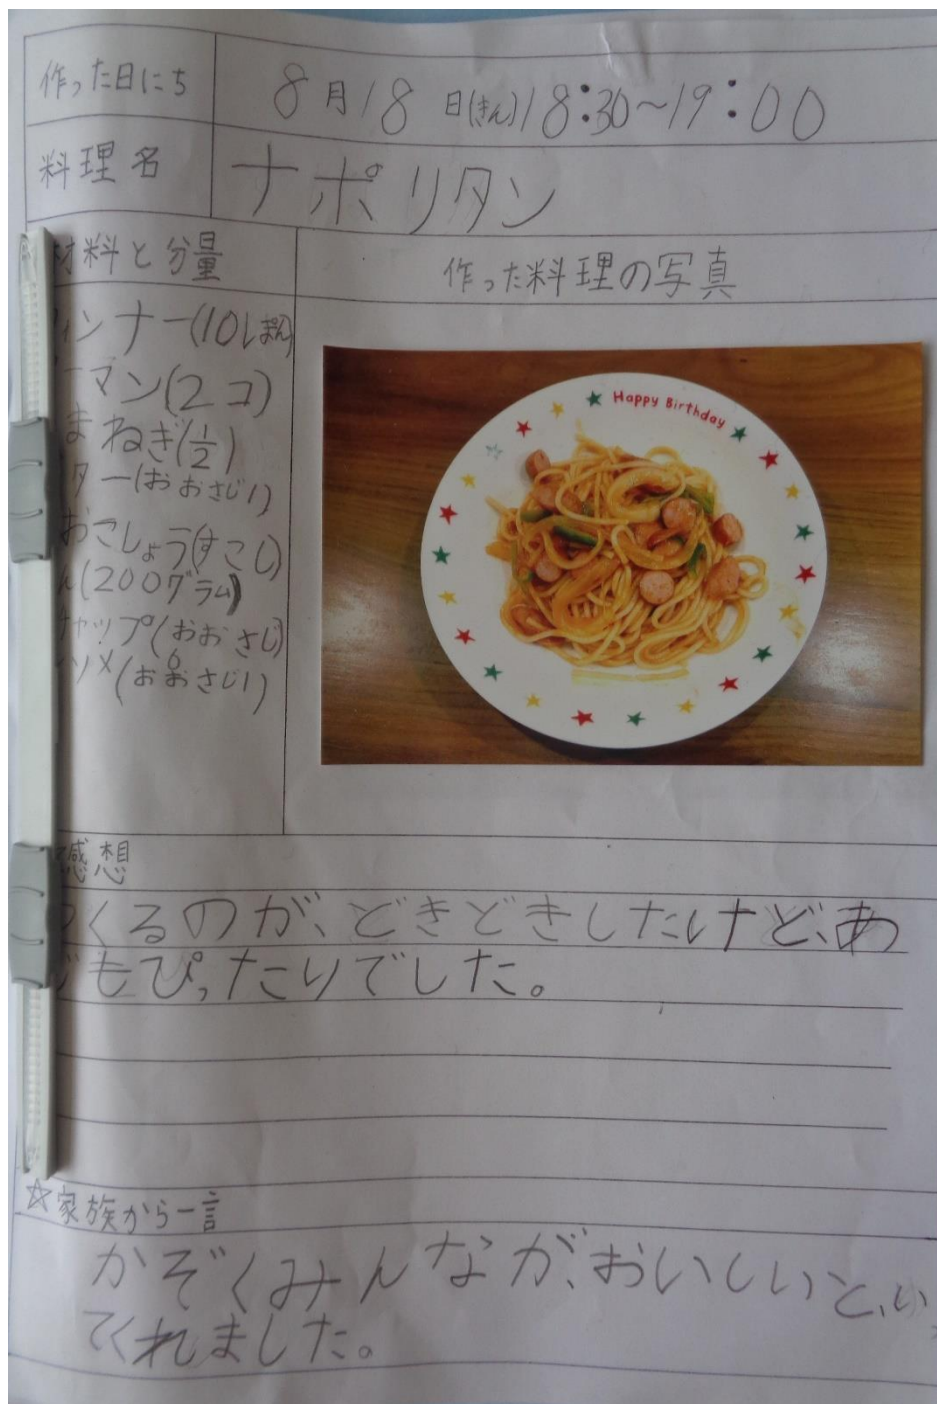 作った日にち
8月18日(きん)18:30～19:00
料理名
ナポリタン
材料と分量
ィンナー(10ぽん)
ーマン(2コ)
まねぎ(1/2)
ター(おおさじ1)
おこしょう(すこし)
ん(200グラム)
チャップ(おおさじ6)
ソメ(おおさじ1)
作った料理の写真
Happy Birthday
感想
つくるのが、どきどきしたけど、あ
じもぴったりでした。
☆家族から一言
かぞくみんなが、おいしいと、いっ
てくれました。